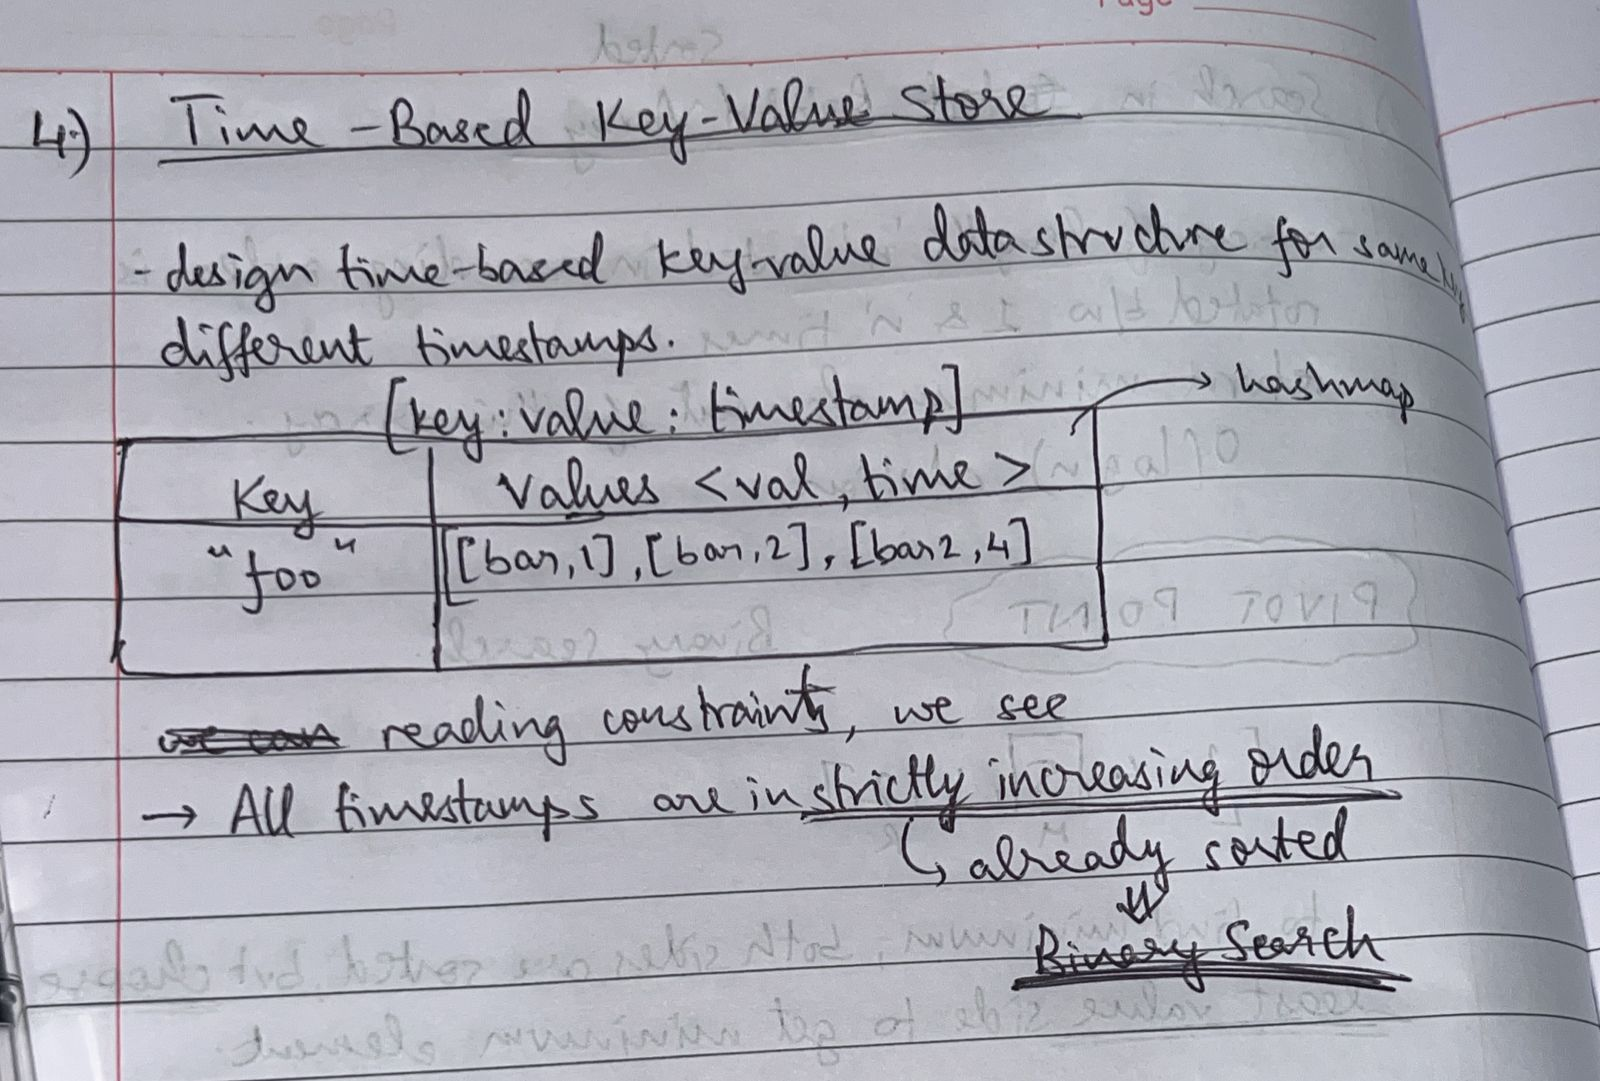 4.) Time-Based Key-Value Store
- design time-based key-value data structure for same key
different timestamps.
[key:value:timestamp] → hashmap
Key Values <val, time>
"foo" [[bar,1],[bar,2],[bar2,4]
reading constraints, we see
→ All timestamps are in strictly increasing order
↳ already sorted
⇓
Binary Search